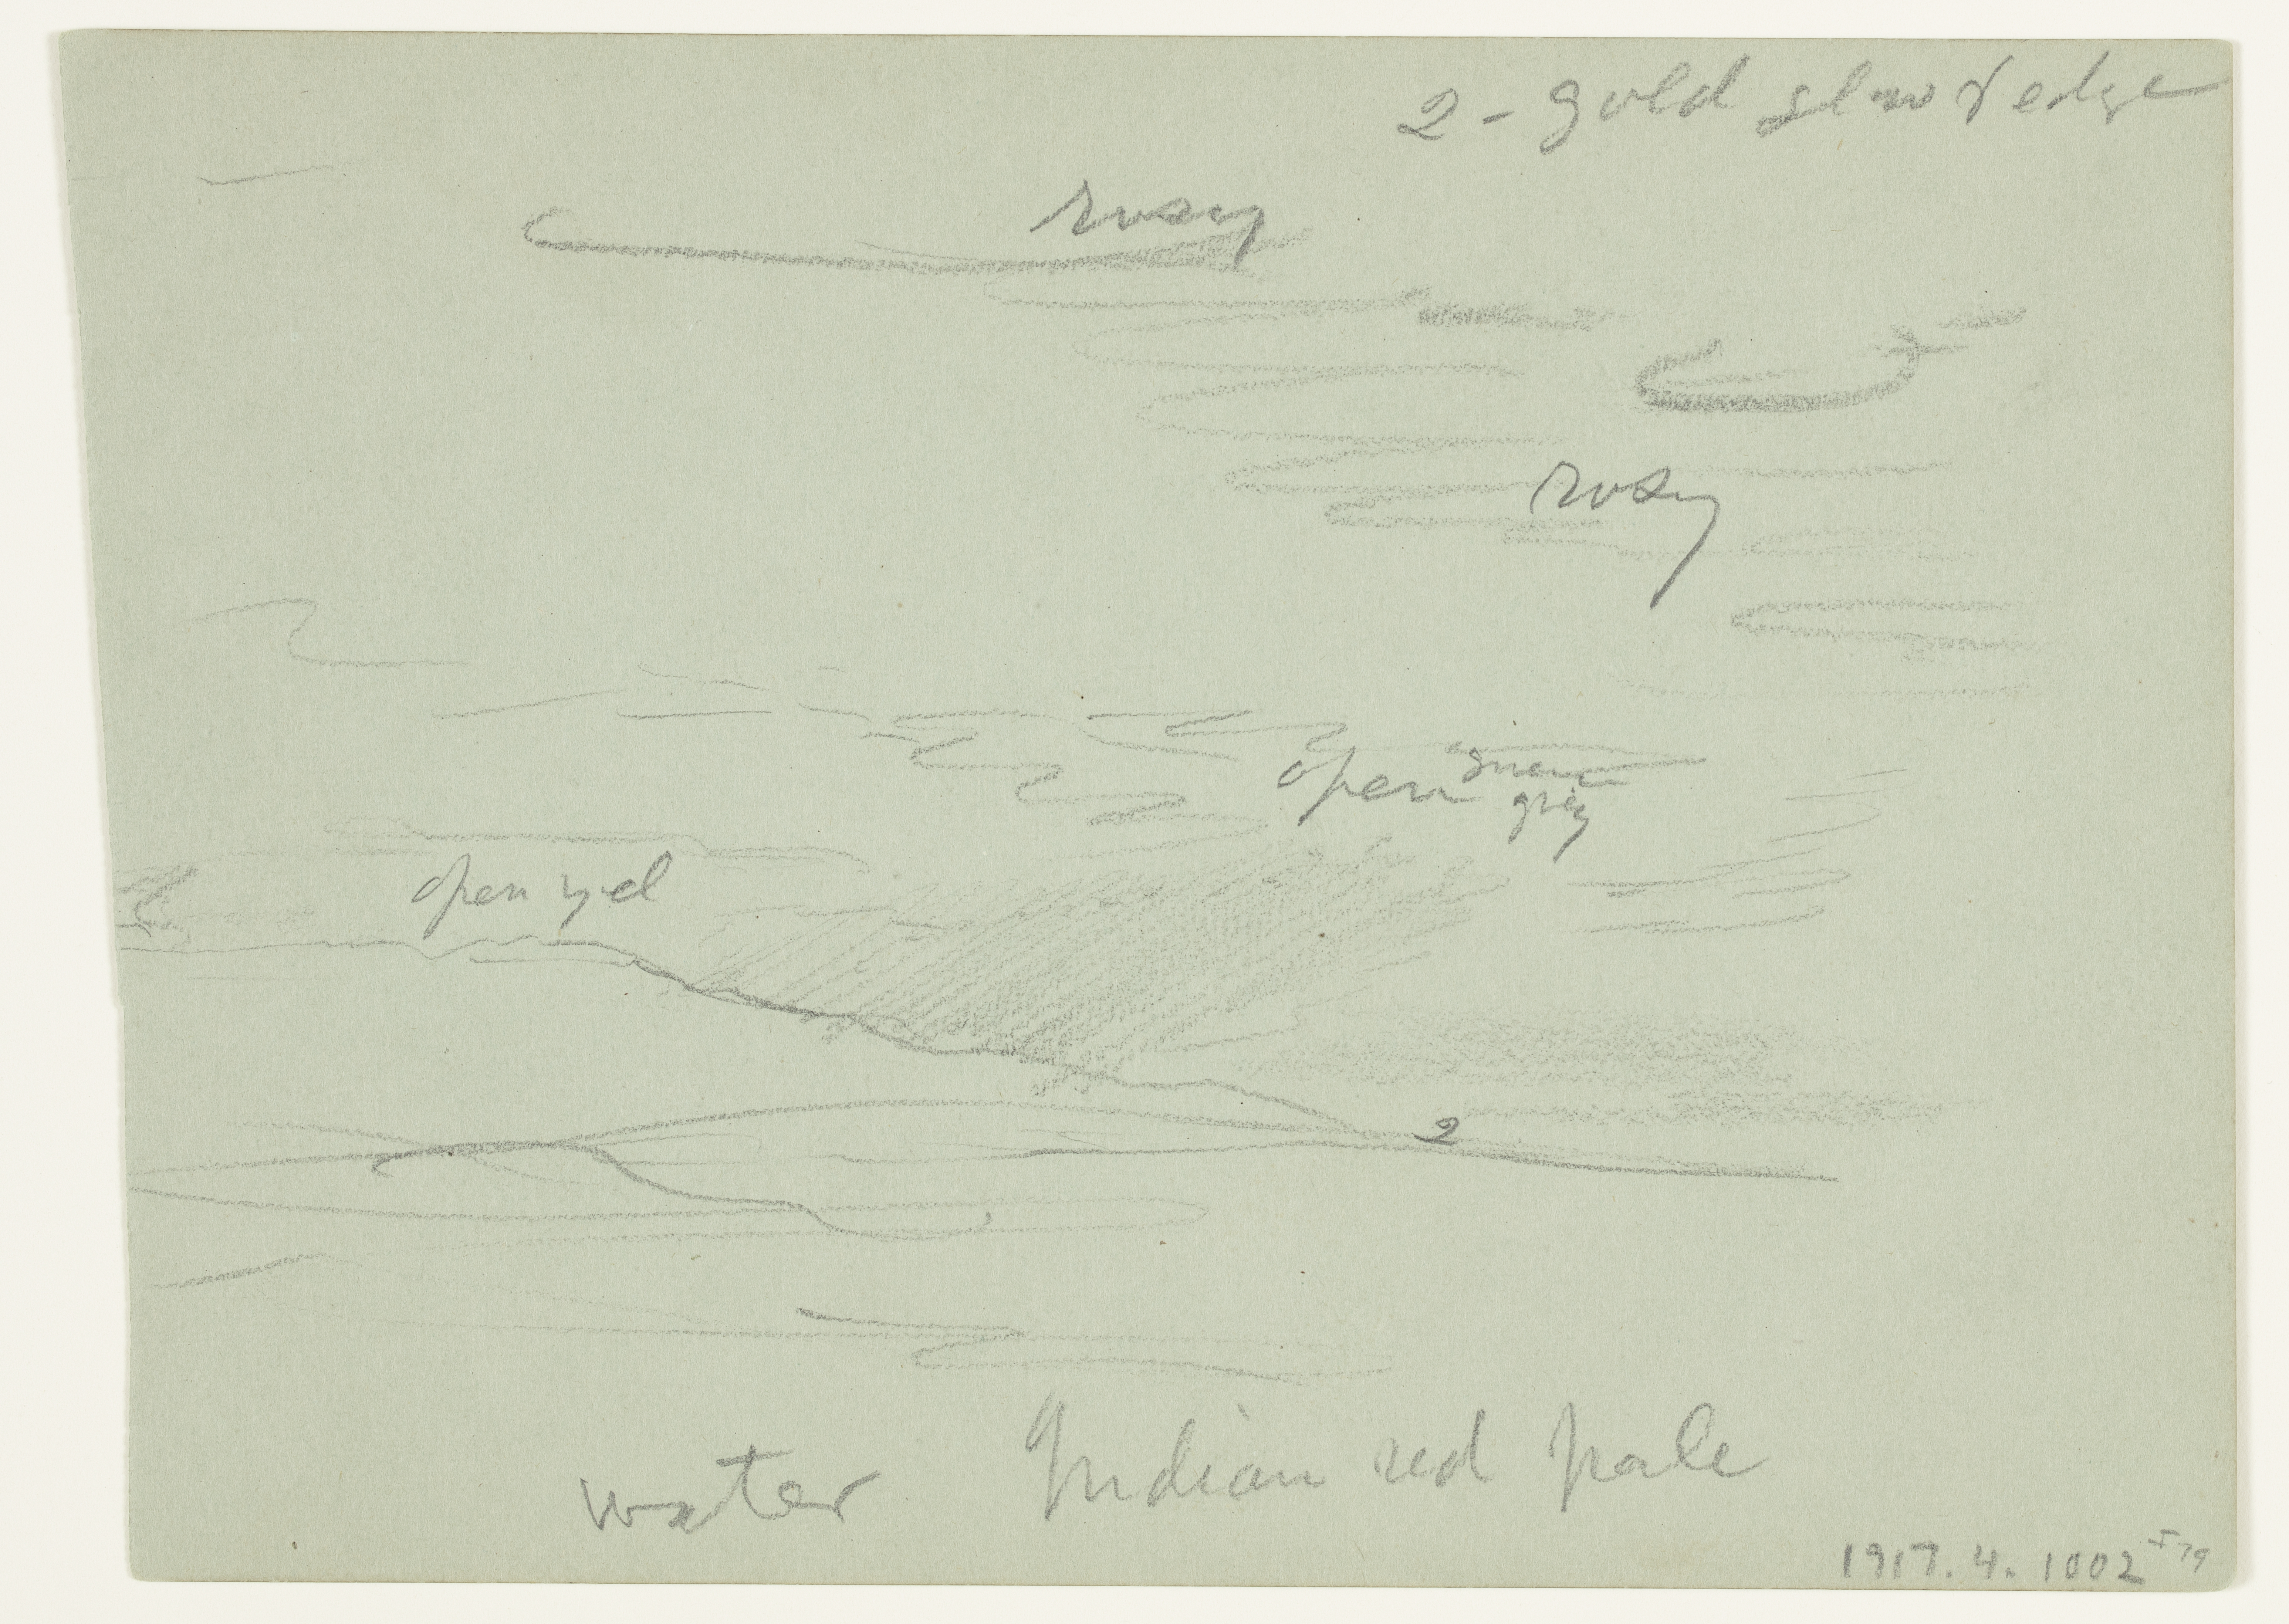 2 - gold glow & edge
rosy
rosy
open green
grey
open yel
2
water Indian red pale
1917.4.1002